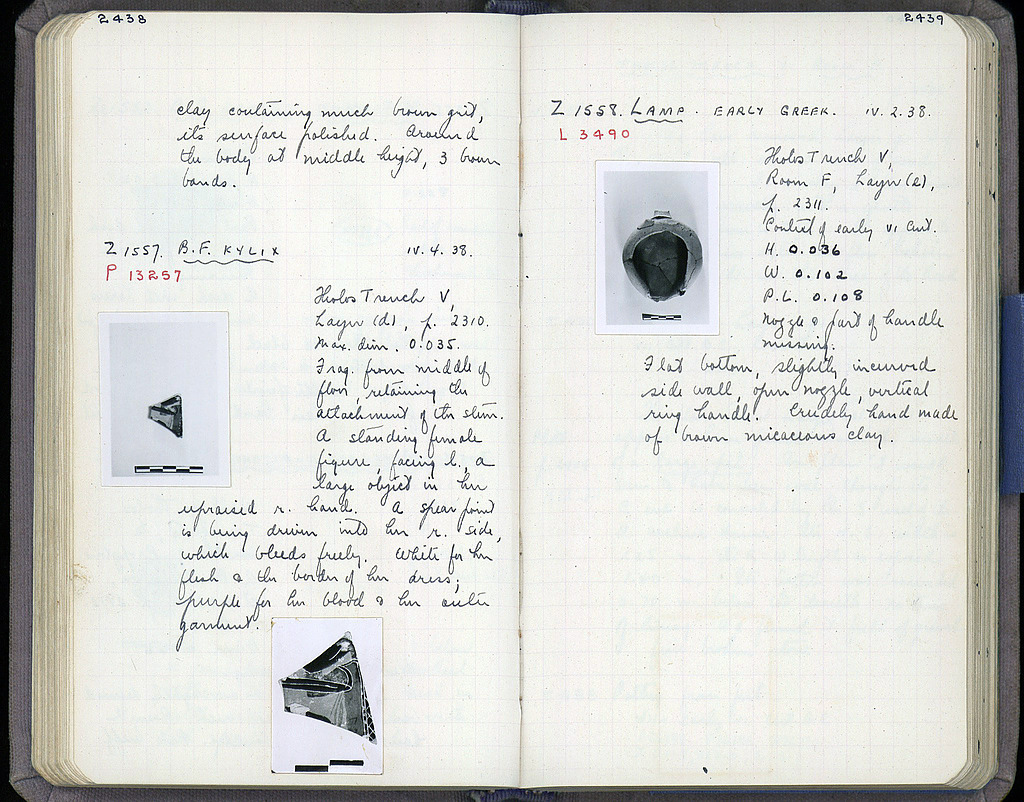 2438
clay containing much brown grit,
its surface polished. Around
the body at middle height, 3 brown
bands.
Z 1557. B.F. KYLIX IV. 4. 38.
P 13257
Tholos Trench V,
Layer (d), p. 2310.
Max. dim. 0.035.
Frag. from middle of
floor, retaining the
attachment of the stem.
A standing female
figure, facing l., a
large object in her
upraised r. hand. A spear point
is being driven into her r. side,
which bleeds freely. White for her
flesh & the border of her dress;
purple for her blood & her outer
garment.
2439
Z 1558. LAMP. EARLY GREEK. IV. 2. 38.
L 3490
Tholos Trench V,
Room F, Layer (e),
p. 2311.
Context of early VI Cent.
H. 0.036
W. 0.102
P.L. 0.108
Nozzle & part of handle
missing.
Flat bottom, slightly incurved
side wall, open nozzle, vertical
ring handle. Crudely hand made
of brown micaceous clay.